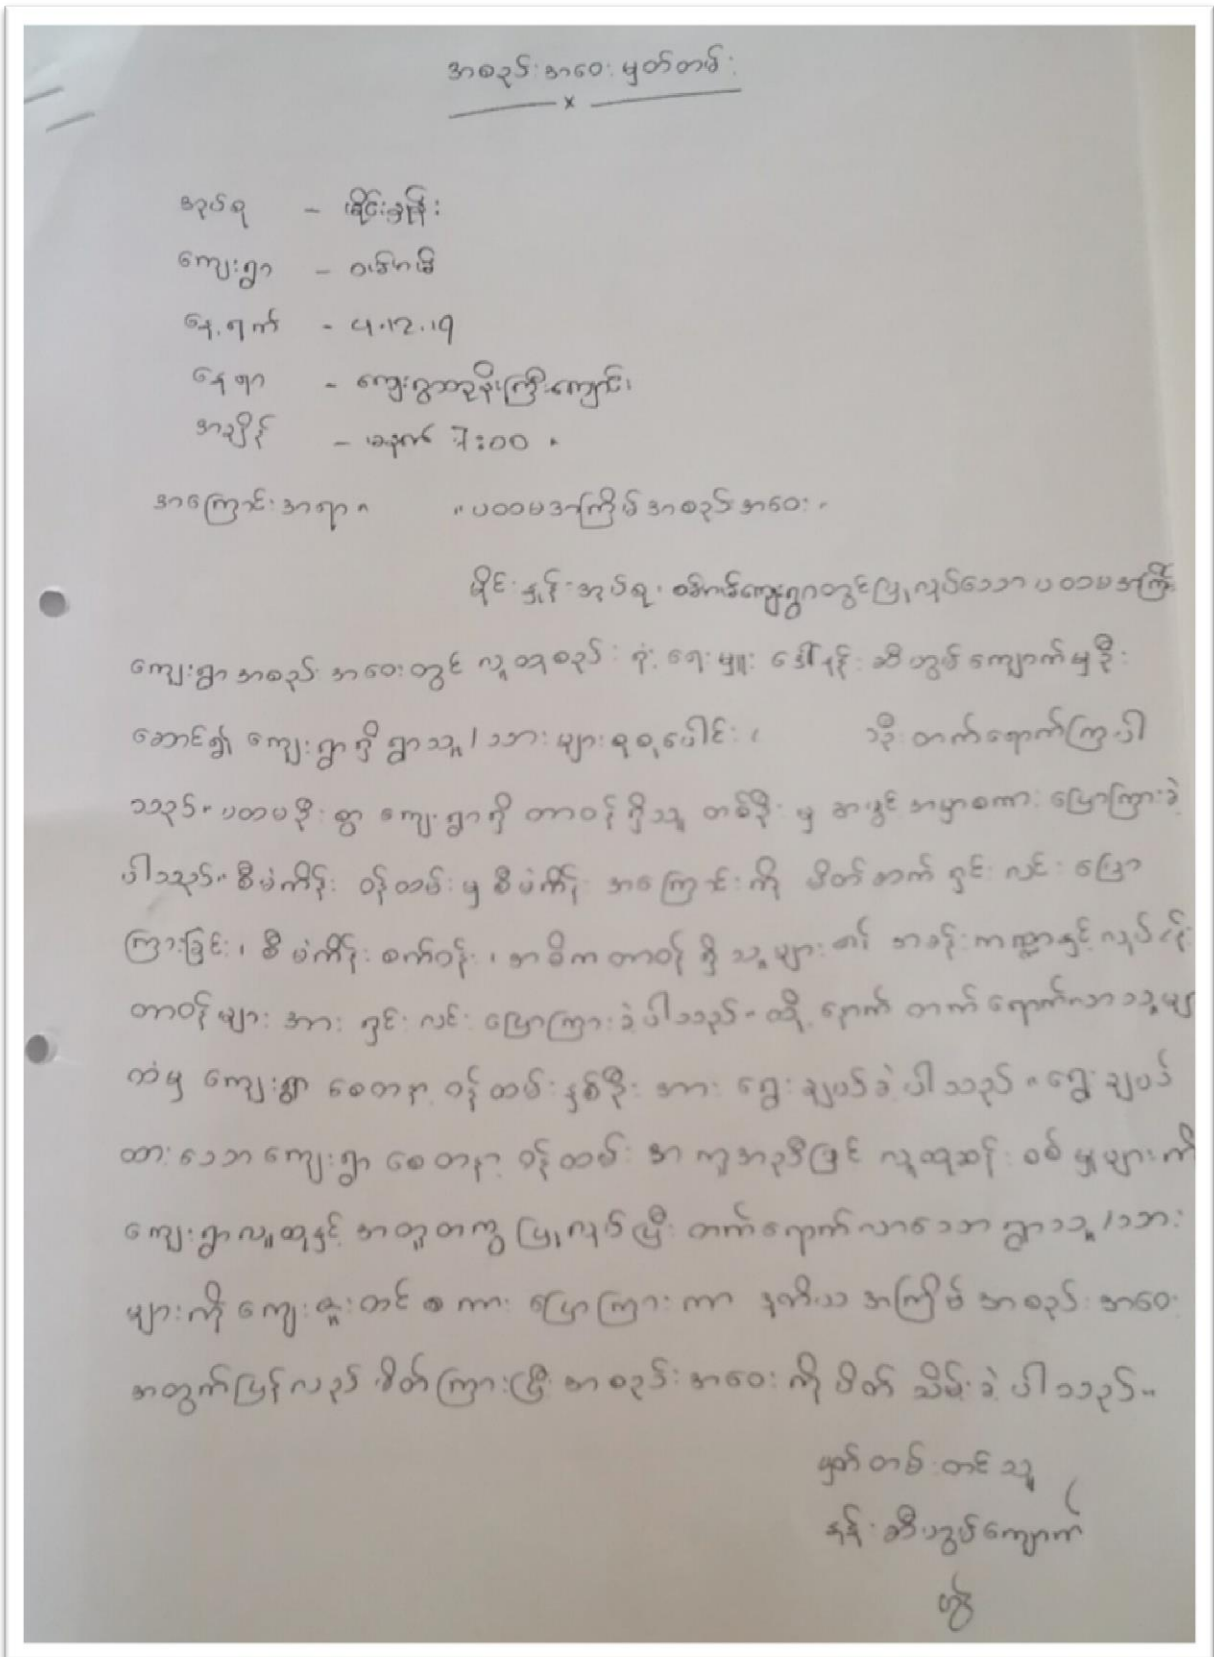 အစည်းအဝေးမှတ်တမ်း
x
အုပ်စု - မိုင်းနှုန်း
ကျေးရွာ -
နေ့ရက် - ၅.12.19
နေရာ - ကျေးရွာဘုန်းကြီးကျောင်း
အချိန် - မနက် 7:00
အကြောင်းအရာ။ "ပထမအကြိမ်အစည်းအဝေး"
မိုင်းနှုန်းအုပ်စု၊ ကျေးရွာတွင်ပြုလုပ်သောပထမအကြိမ်
ကျေးရွာအစည်းအဝေးတွင် လူထုစည်းရုံးရေးမှူး ဒေါ်နန်းဆီဟွမ်ကျောက်မှဦး
ဆောင်၍ ကျေးရွာရှိရွာသူ/သားများစုစုပေါင်း ( ဦးတက်ရောက်ကြပါ
သည်။ ပထမဦးစွာ ကျေးရွာရှိ တာဝန်ရှိသူ တစ်ဦးမှ အဖွင့်အမှာစကားပြောကြားခဲ့
ပါသည်။ စီမံကိန်း ဝန်ထမ်းမှ စီမံကိန်းအကြောင်းကို မိတ်ဆက် ရှင်းလင်းပြော
ကြားခြင်း၊ စီမံကိန်းစက်ဝန်း၊ အဓိကတာဝန်ရှိသူများ၏ အခန်းကဏ္ဍနှင့်လုပ်ငန်း
တာဝန်များအား ရှင်းလင်းပြောကြားခဲ့ပါသည်။ ထို့နောက် တက်ရောက်လာသူမျ
ထဲမှ ကျေးရွာစေတနာ့ဝန်ထမ်းနှစ်ဦးအား ရွေးချယ်ခဲ့ပါသည်။ ရွေးချယ်
ထားသောကျေးရွာစေတနာ့ဝန်ထမ်းအကူအညီဖြင့် လူထုဆန်းစစ်မှုများကို
ကျေးရွာလူထုနှင့်အတူတကွ ပြုလုပ်ပြီး တက်ရောက်လာသော ရွာသူ/သား
များကို ကျေးဇူးတင်စကားပြောကြားကာ ဒုတိယအကြိမ်အစည်းအဝေး
အတွက်ပြန်လည်ဖိတ်ကြားပြီး အစည်းအဝေးကို ပိတ်သိမ်းခဲ့ပါသည်။
မှတ်တမ်းတင်သူ
နန်းဆီဟွမ်ကျောက်